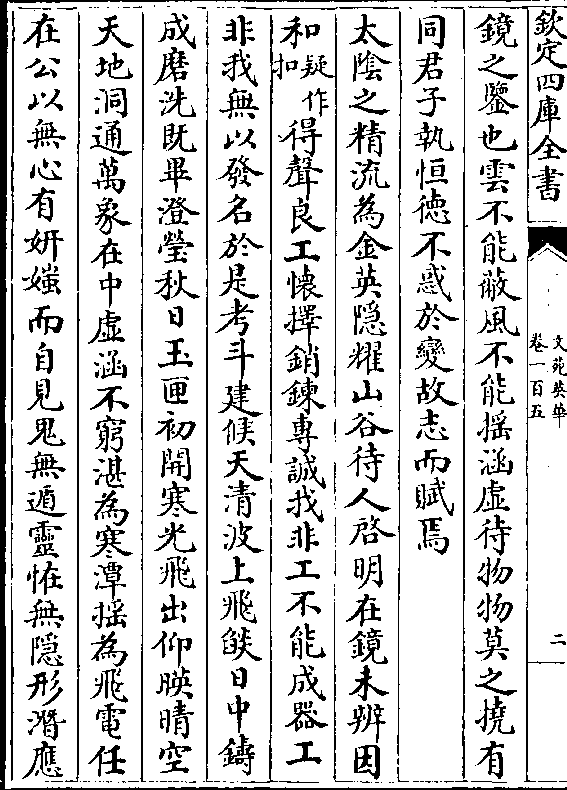 欽定四庫全書
文苑英華
卷一百五
二
鏡之鑒也雲不能蔽風不能揺涵虚待物物莫之撓有
同君子執恒德不惑於變故志而賦焉
太陰之精流為金英隱耀山谷待人啓明在鏡未辨因
和疑作扣得聲良工懐擇銷錬專誠找非工不能成器工
非我無以發名於是考斗建候天清波上飛燄日中鑄
成磨洗既畢澄瑩秋日玉匣初開寒光飛出仰暎晴空
天地洞通萬象在中虚涵不窮湛為寒潭揺為飛電任
在公以無心有妍媸而自見鬼無遁靈恠無隱形潛應